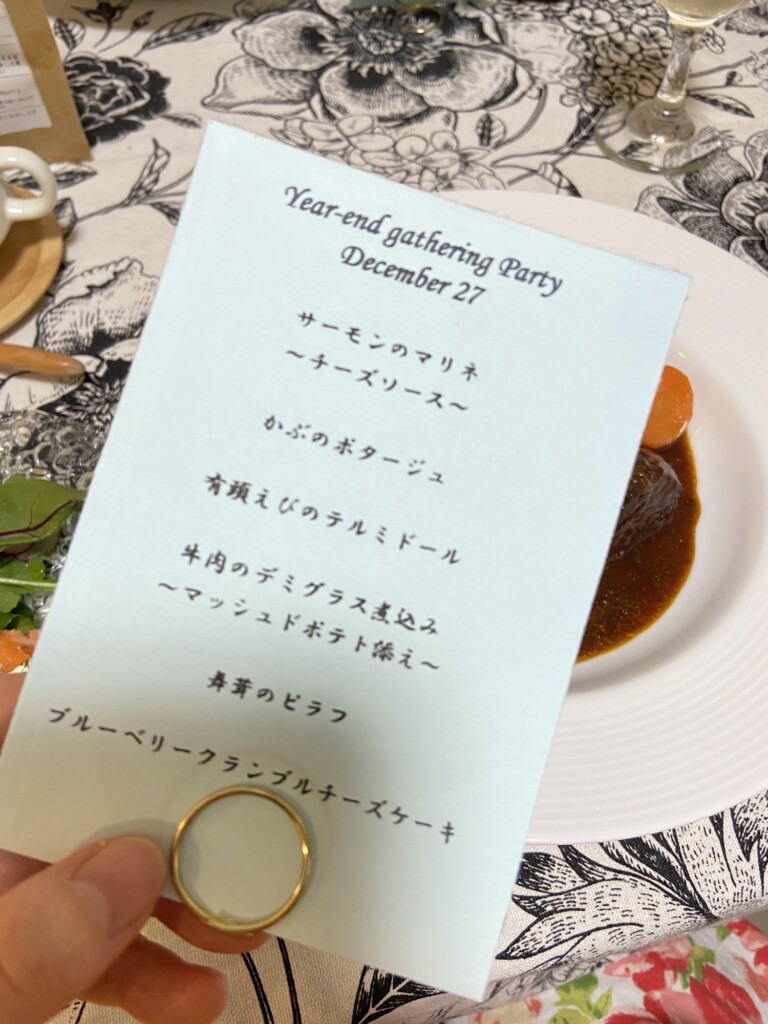 Year-end gathering Party
December 27
サーモンのマリネ
～チーズソース～
かぶのポタージュ
有頭えびのテルミドール
牛肉のデミグラス煮込み
～マッシュドポテト添え～
舞茸のピラフ
ブルーベリークランブルチーズケーキ